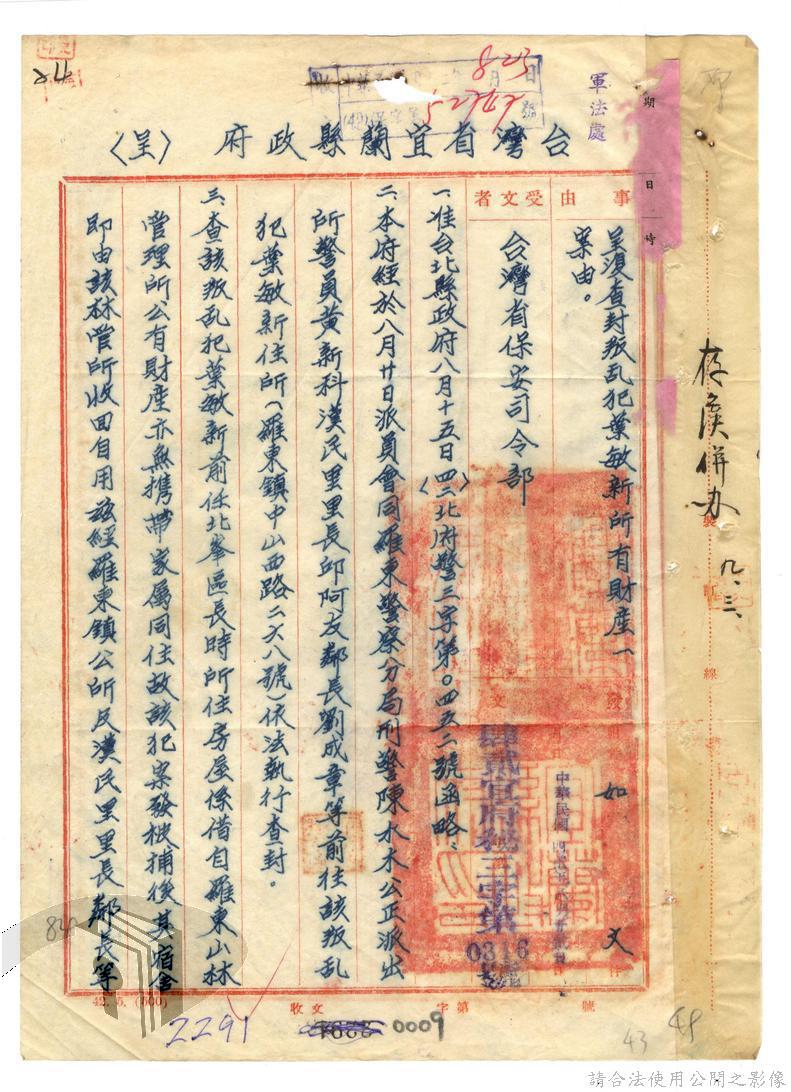 台灣省宜蘭縣政府（呈）
軍法處
8月23日
52767號
事由
呈復查封叛乱犯葉敏新所有財產一
案由。
受文者
台灣省保安司令部
如文
中華民國
0316
一、准台北縣政府八月十五日（四二）北府警三字第〇四五二號函略、
二、本府經於八月廿日派員會同羅東警察分局刑警陳水木公正派出
所警員黃新科漢民里里長邱阿友鄰長劉成章等前往該叛乱
犯葉敏新住所（羅東鎮中山西路二六八號）依法執行查封。
三、查該叛乱犯葉敏新前任北峯區長時所住房屋係借自羅東山林
管理所公有財產亦無携帶家屬同住故該犯案發被捕後其宿舍
即由該林管所收回自用茲經羅東鎮公所及漢民里里長鄰長等
存候併办
九、三、
裝訂線
期
日
時
42. 5. (500)
收文 字第 號
2291
0009
43
48
請合法使用公開之影像